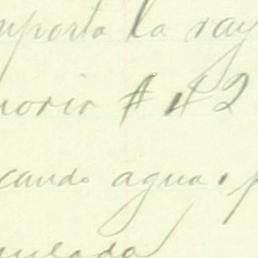 mporta la ray
morir # #2
cando agua. p
mulada